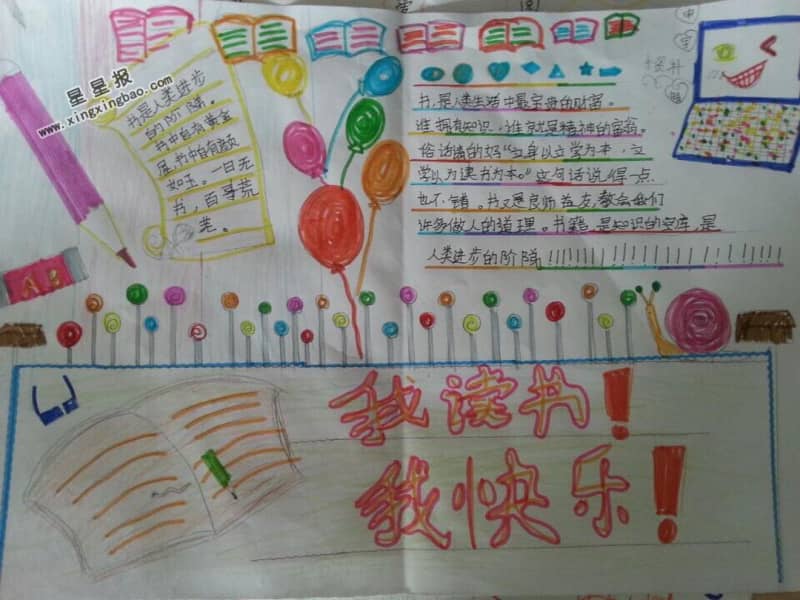 星星报
www.xingxingbao.com
书是人类进步
的阶
书中自有黄金
屋,书中自有颜
如玉。一日无
书，百事荒
芜。
书,是人类生活中最宝贵的财富。
谁拥有知识,谁就是精神的富翁。
俗话讲的好"立身以立学为本，立
学以为读书为本。"这句话说得一点
也不错。书又是良师益友,教会我们
许多做人的道理。书籍,是知识的宝库,是
人类进步的阶
AB
我读书!
我快乐!